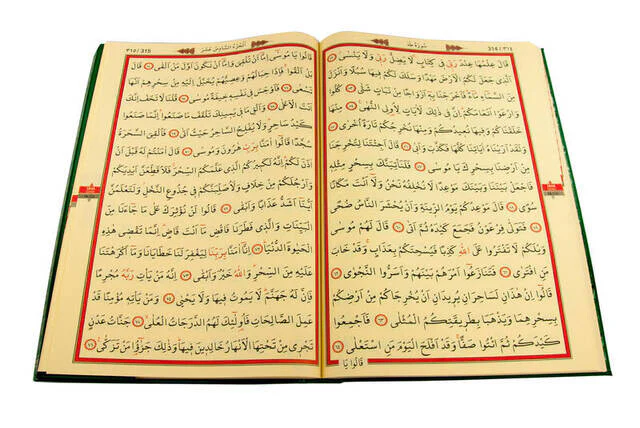 ٣١٤/314 سُورَةُ طٰهٰ
قَالَ عِلْمُهَا عِنْدَ رَبِّي فِي كِتَابٍ لَا يَضِلُّ رَبِّي وَلَا يَنْسٰىۘ ﴿٥٢﴾
اَلَّذِي جَعَلَ لَكُمُ الْاَرْضَ مَهْدًا وَسَلَكَ لَكُمْ فِيهَا سُبُلًا وَاَنْزَلَ
مِنَ السَّمَاءِ مَاءً فَاَخْرَجْنَا بِهِ اَزْوَاجًا مِنْ نَبَاتٍ شَتّٰى ﴿٥٣﴾ كُلُوا
وَارْعَوْا اَنْعَامَكُمْ اِنَّ فِي ذٰلِكَ لَاٰيَاتٍ لِاُولِي النُّهٰى ﴿٥٤﴾ مِنْهَا
خَلَقْنَاكُمْ وَفِيهَا نُعِيدُكُمْ وَمِنْهَا نُخْرِجُكُمْ تَارَةً اُخْرٰى ﴿٥٥﴾
وَلَقَدْ اَرَيْنَاهُ اٰيَاتِنَا كُلَّهَا فَكَذَّبَ وَاَبٰى ﴿٥٦﴾ قَالَ اَجِئْتَنَا لِتُخْرِجَنَا
مِنْ اَرْضِنَا بِسِحْرِكَ يَا مُوسٰى ﴿٥٧﴾ فَلَنَأْتِيَنَّكَ بِسِحْرٍ مِثْلِهِ
فَاجْعَلْ بَيْنَنَا وَبَيْنَكَ مَوْعِدًا لَا نُخْلِفُهُ نَحْنُ وَلَا اَنْتَ مَكَانًا
سُوًى ﴿٥٨﴾ قَالَ مَوْعِدُكُمْ يَوْمُ الزِّينَةِ وَاَنْ يُحْشَرَ النَّاسُ ضُحًى
﴿٥٩﴾ فَتَوَلّٰى فِرْعَوْنُ فَجَمَعَ كَيْدَهُ ثُمَّ اَتٰى ﴿٦٠﴾ قَالَ لَهُمْ مُوسٰى
وَيْلَكُمْ لَا تَفْتَرُوا عَلَى اللّٰهِ كَذِبًا فَيُسْحِتَكُمْ بِعَذَابٍ وَقَدْ خَابَ
مَنِ افْتَرٰى ﴿٦١﴾ فَتَنَازَعُوا اَمْرَهُمْ بَيْنَهُمْ وَاَسَرُّوا النَّجْوٰى ﴿٦٢﴾
قَالُوا اِنْ هٰذَانِ لَسَاحِرَانِ يُرِيدَانِ اَنْ يُخْرِجَاكُمْ مِنْ اَرْضِكُمْ
بِسِحْرِهِمَا وَيَذْهَبَا بِطَرِيقَتِكُمُ الْمُثْلٰى ﴿٦٣﴾ فَاَجْمِعُوا
كَيْدَكُمْ ثُمَّ ائْتُوا صَفًّا وَقَدْ اَفْلَحَ الْيَوْمَ مَنِ اسْتَعْلٰى ﴿٦٤﴾
قَالُوا يَا
اَلْجُزْءُ السَّادِسُ عَشَرَ ٣١٥/315
قَالُوا يَا مُوسٰى اِمَّا اَنْ تُلْقِيَ وَاِمَّا اَنْ نَكُونَ اَوَّلَ مَنْ اَلْقٰى ﴿٦٥﴾ قَالَ
بَلْ اَلْقُوا فَاِذَا حِبَالُهُمْ وَعِصِيُّهُمْ يُخَيَّلُ اِلَيْهِ مِنْ سِحْرِهِمْ اَنَّهَا
تَسْعٰى ﴿٦٦﴾ فَاَوْجَسَ فِي نَفْسِهِ خِيفَةً مُوسٰى ﴿٦٧﴾ قُلْنَا لَا تَخَفْ اِنَّكَ
اَنْتَ الْاَعْلٰى ﴿٦٨﴾ وَاَلْقِ مَا فِي يَمِينِكَ تَلْقَفْ مَا صَنَعُوا اِنَّمَا صَنَعُوا
كَيْدُ سَاحِرٍ وَلَا يُفْلِحُ السَّاحِرُ حَيْثُ اَتٰى ﴿٦٩﴾ فَاُلْقِيَ السَّحَرَةُ
سُجَّدًا قَالُوا اٰمَنَّا بِرَبِّ هٰرُونَ وَمُوسٰى ﴿٧٠﴾ قَالَ اٰمَنْتُمْ لَهُ قَبْلَ اَنْ
اٰذَنَ لَكُمْ اِنَّهُ لَكَبِيرُكُمُ الَّذِي عَلَّمَكُمُ السِّحْرَ فَلَاُقَطِّعَنَّ اَيْدِيَكُمْ
وَاَرْجُلَكُمْ مِنْ خِلَافٍ وَلَاُصَلِّبَنَّكُمْ فِي جُذُوعِ النَّخْلِ وَلَتَعْلَمُنَّ
اَيُّنَا اَشَدُّ عَذَابًا وَاَبْقٰى ﴿٧١﴾ قَالُوا لَنْ نُؤْثِرَكَ عَلٰى مَا جَاءَنَا مِنَ
الْبَيِّنَاتِ وَالَّذِي فَطَرَنَا فَاقْضِ مَا اَنْتَ قَاضٍ اِنَّمَا تَقْضِي هٰذِهِ
الْحَيٰوةَ الدُّنْيَا ﴿٧٢﴾ اِنَّا اٰمَنَّا بِرَبِّنَا لِيَغْفِرَ لَنَا خَطَايَانَا وَمَا اَكْرَهْتَنَا
عَلَيْهِ مِنَ السِّحْرِ وَاللّٰهُ خَيْرٌ وَاَبْقٰى ﴿٧٣﴾ اِنَّهُ مَنْ يَأْتِ رَبَّهُ مُجْرِمًا
فَاِنَّ لَهُ جَهَنَّمَ لَا يَمُوتُ فِيهَا وَلَا يَحْيٰى ﴿٧٤﴾ وَمَنْ يَأْتِهِ مُؤْمِنًا قَدْ
عَمِلَ الصَّالِحَاتِ فَاُولٰئِكَ لَهُمُ الدَّرَجَاتُ الْعُلٰى ﴿٧٥﴾ جَنَّاتُ عَدْنٍ
تَجْرِي مِنْ تَحْتِهَا الْاَنْهَارُ خَالِدِينَ فِيهَا وَذٰلِكَ جَزٰٓؤُا مَنْ تَزَكّٰى ﴿٧٦﴾